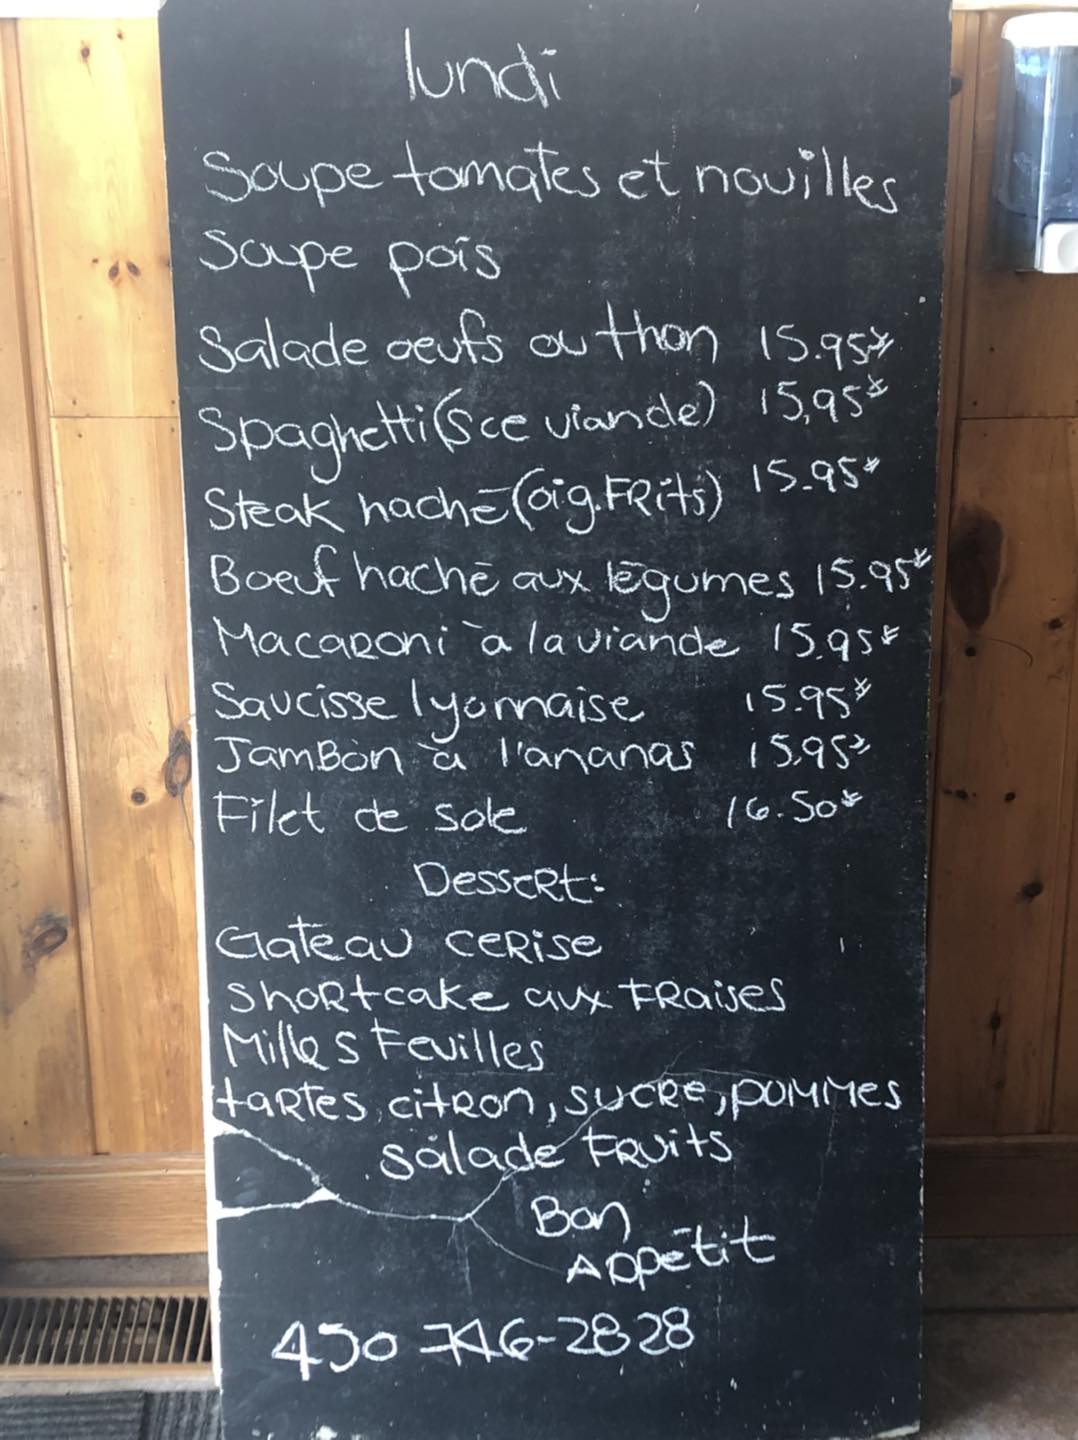 lundi
Soupe tomates et nouilles
Soupe pois
Salade oeufs ou thon 15.95$
Spaghetti (Sce viande) 15,95$
Steak haché (oig. Frits) 15.95$
Boeuf haché aux légumes 15.95$
Macaroni à la viande 15.95$
Saucisse lyonnaise 15.95$
Jambon à l'ananas 15.95$
Filet de sole 16.50$
Dessert:
Gateau cerise
shortcake aux fraises
Milles Feuilles
tartes, citron, sucre, pommes
salade Fruits
Bon
Appétit
450 746-2828